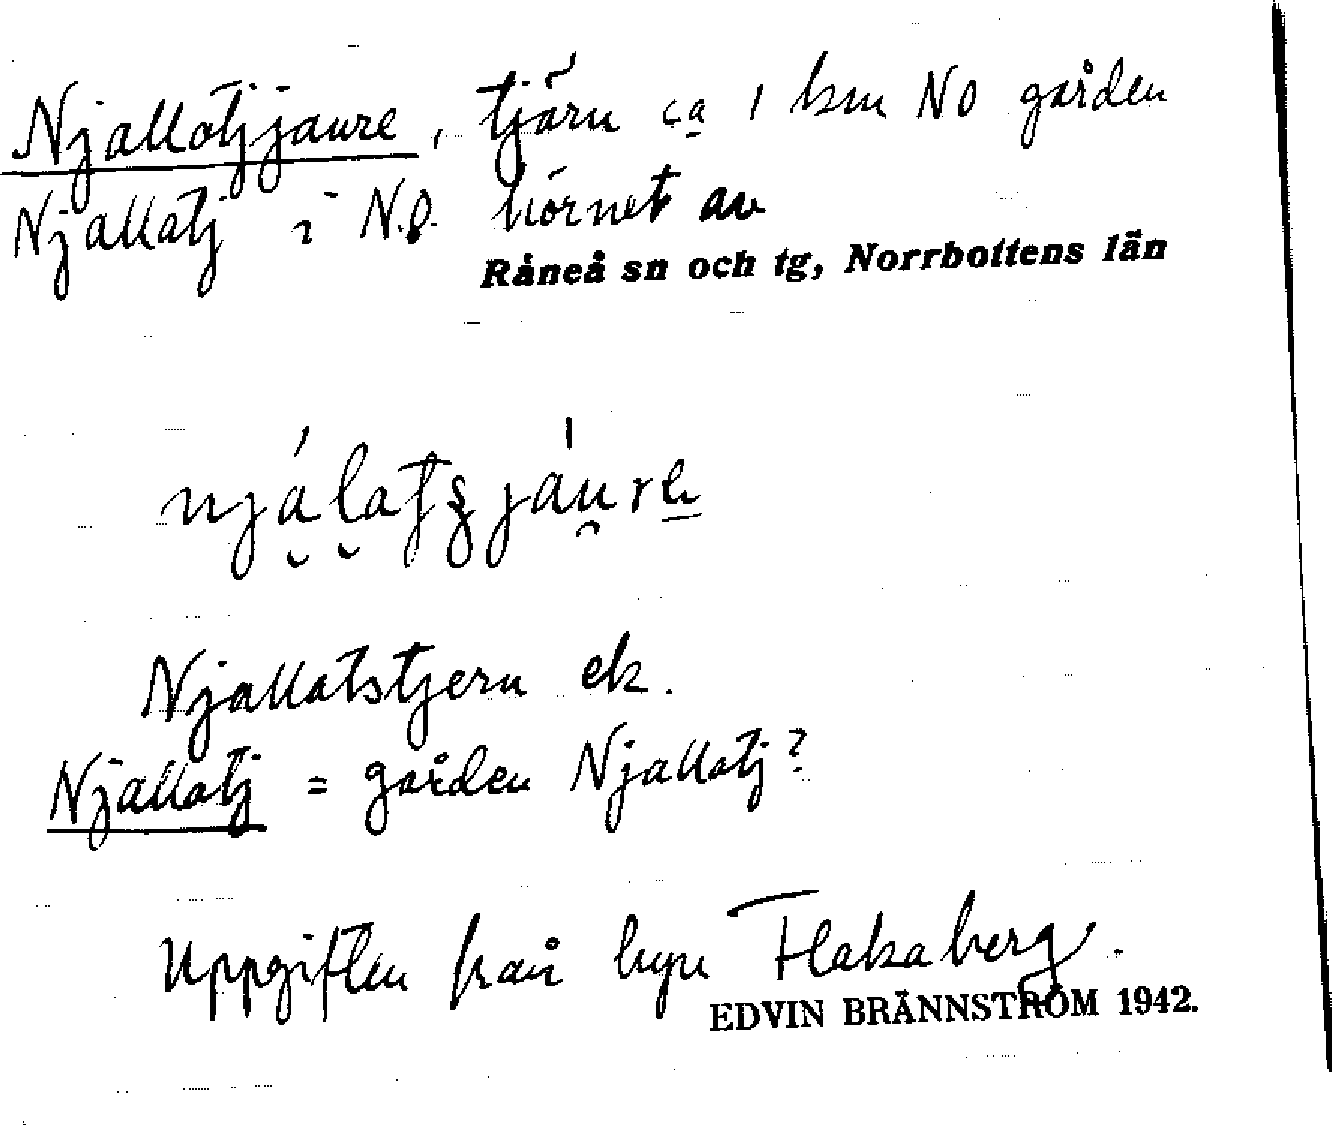 Njallatjjaure, tjärn ca 1 km NO gården
Njallatj i N.O. hörnet av
Råneå sn och tg, Norrbottens län
Njallatstjern ek.
Njallatj = gården Njallatj?
Uppgiften från byn Flakaberg.
EDVIN BRÄNNSTRÖM 1942.